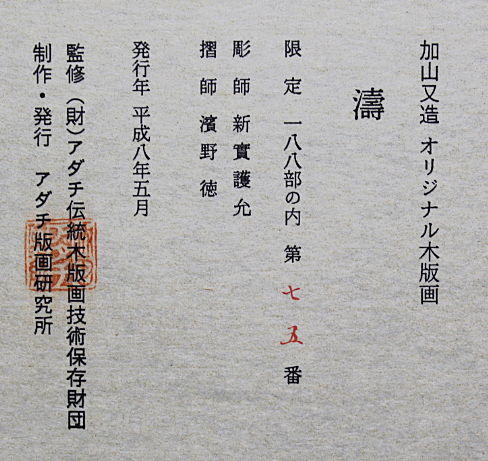 加山又造 オリジナル木版画
濤
限定 一八八部の内 第 七五 番
彫師 新實護允
摺師 濱野徳
発行年 平成八年五月
監修 (財)アダチ伝統木版画技術保存財団
制作・発行 アダチ版画研究所